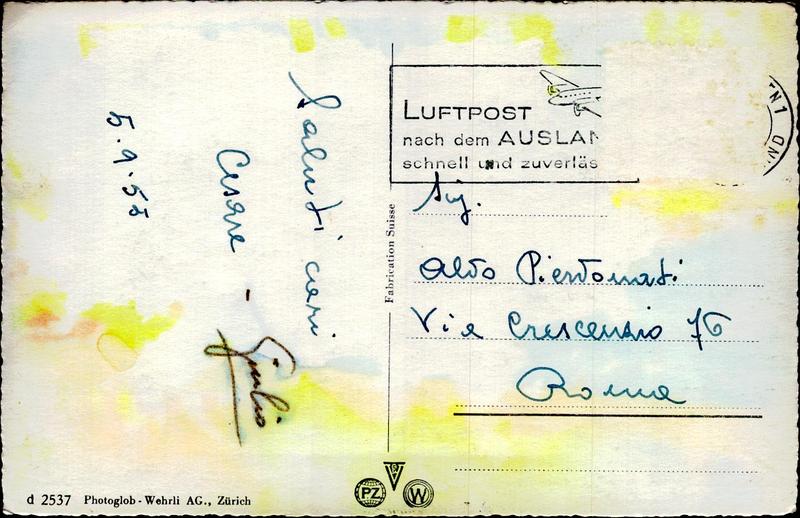 5.9.55
Saluti cari
Cesare -
Giulio
LUFTPOST
nach dem AUSLAN
schnell und zuverläs
Sig.
Aldo Pierdonati
Via Crescenzio 76
Roma
Fabrication Suisse
d 2537 Photoglob-Wehrli AG., Zürich
PZ
W